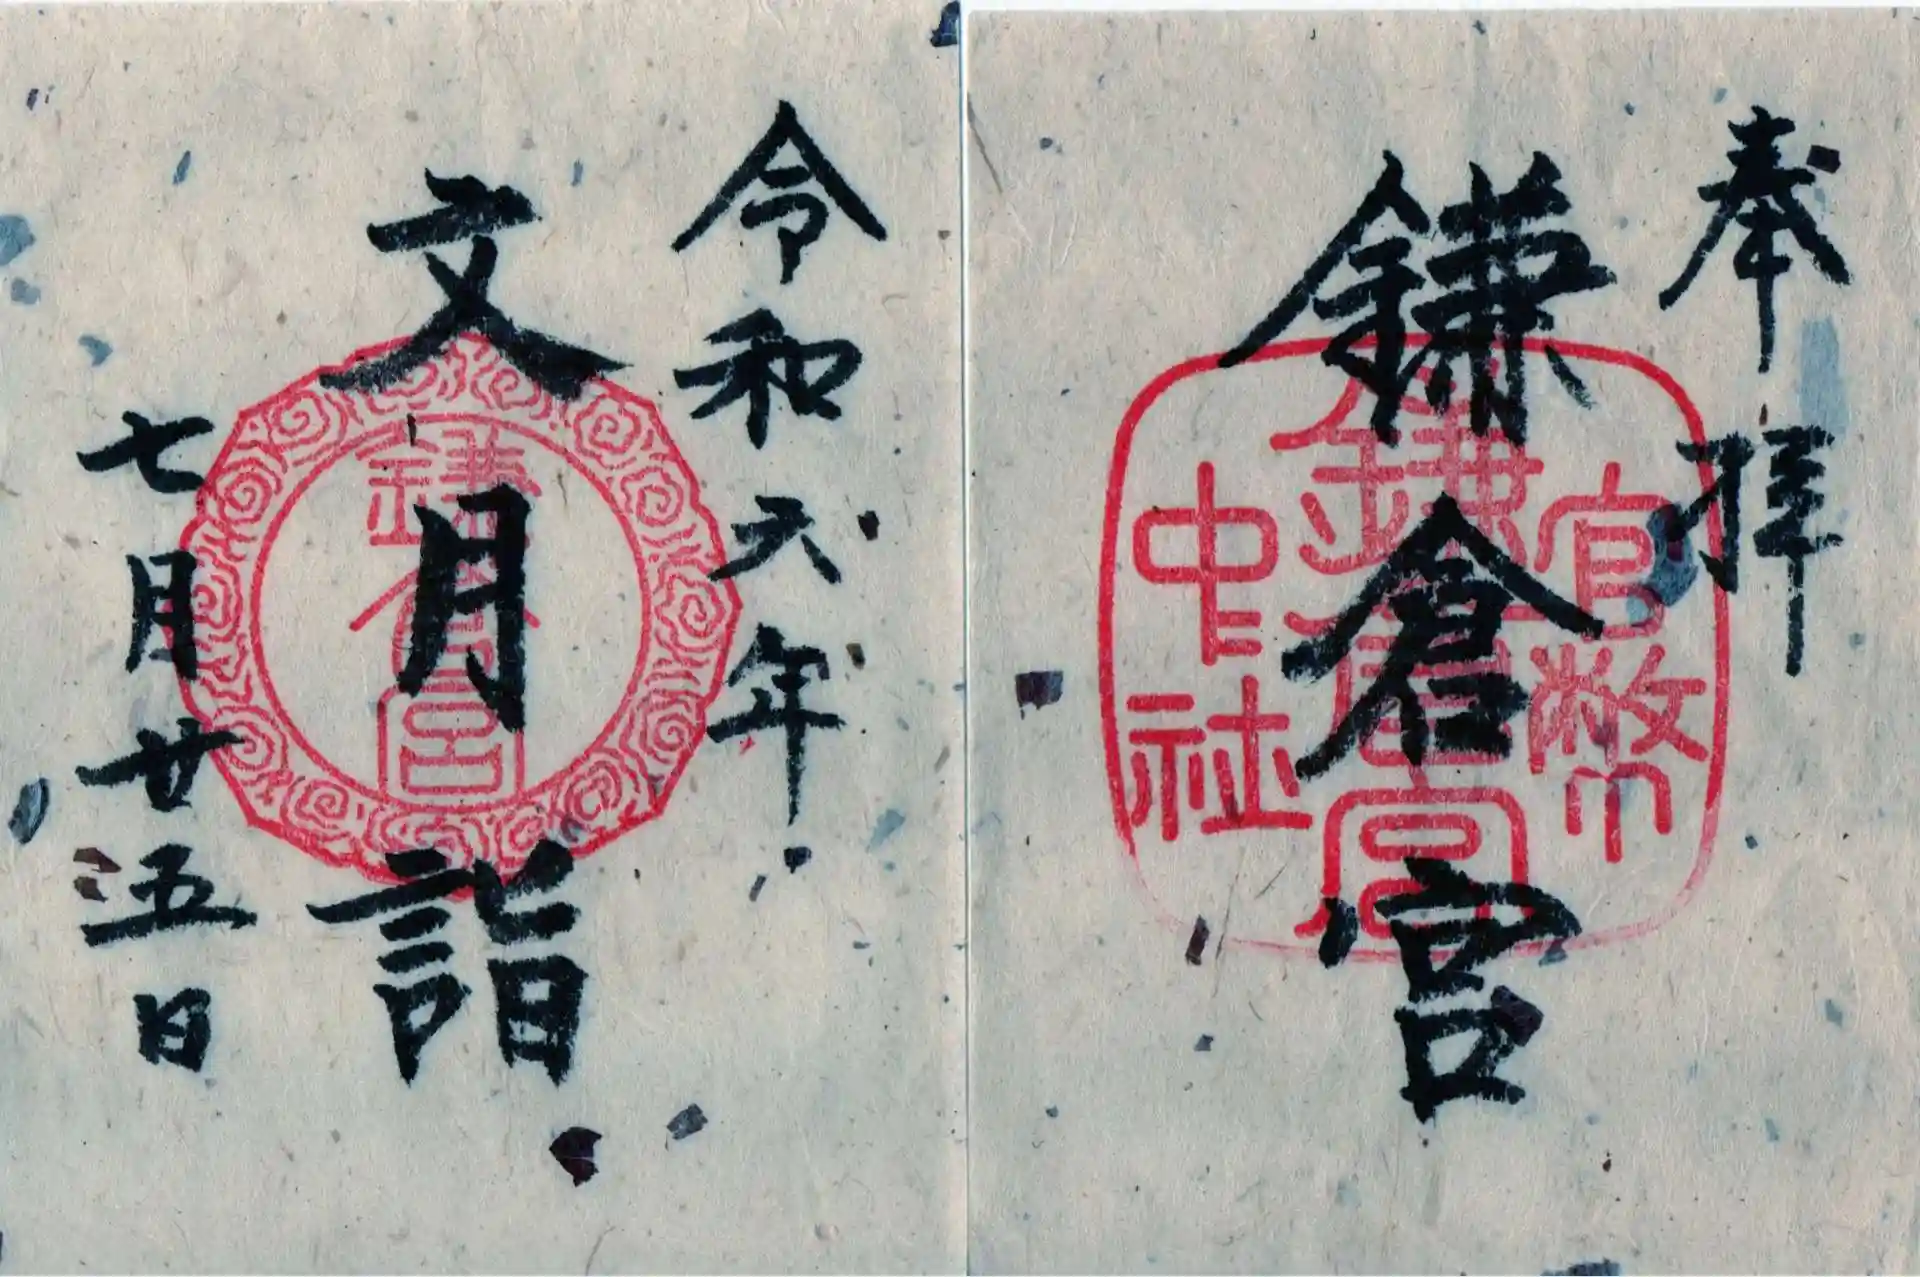 奉拝
鎌倉宮
官幣
鎌倉宮
中社
令和六年
文月詣
鎌倉宮
七月廿五日